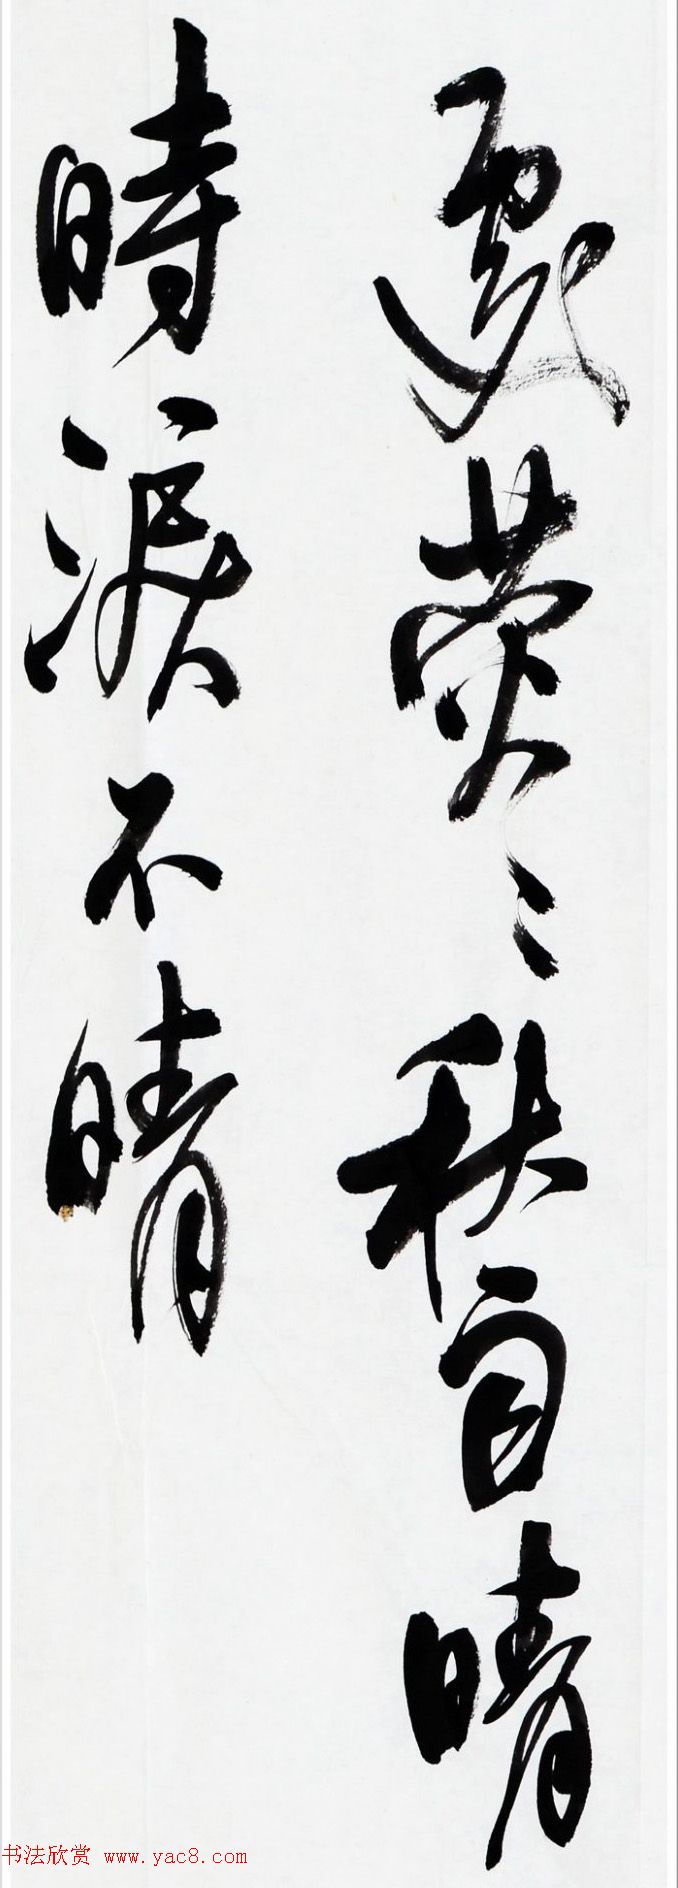 秋自晴
時淚不晴
书法欣赏 www.yac8.com